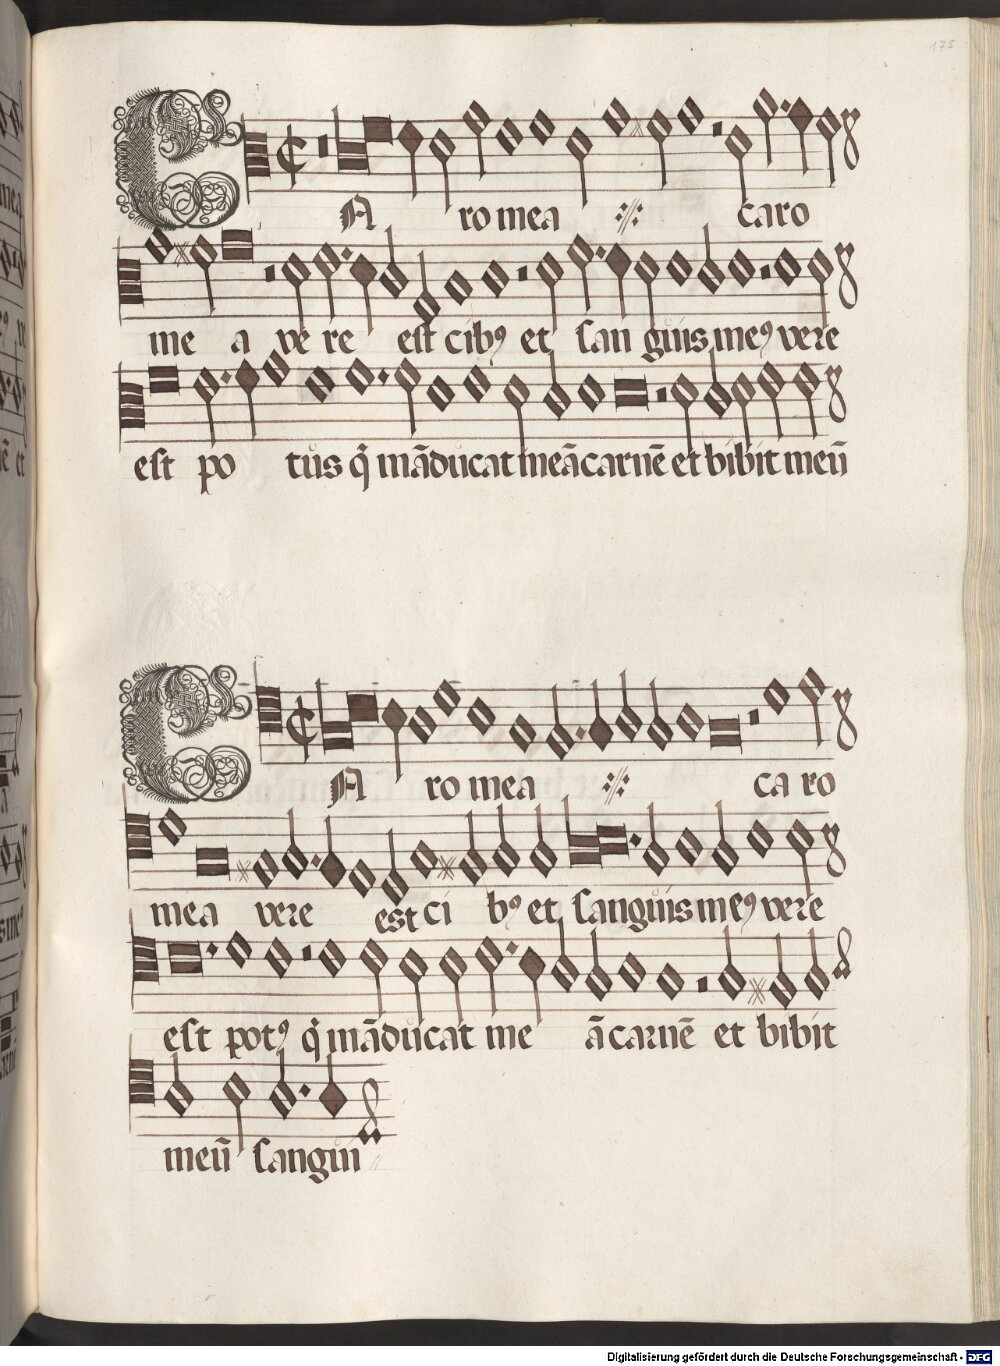 175
CA ro mea ·//· caro
me a ve re est cibꝰ et san guis meꝰ vere
est po tus q̄ māducat meā carnē et bibit meū
CA ro mea ·//· ca ro
mea vere est ci bꝰ et sanguis meꝰ vere
est potꝰ q̄ māducat me ā carnē et bibit
meū sangui
Digitalisierung gefördert durch die Deutsche Forschungsgemeinschaft - DFG